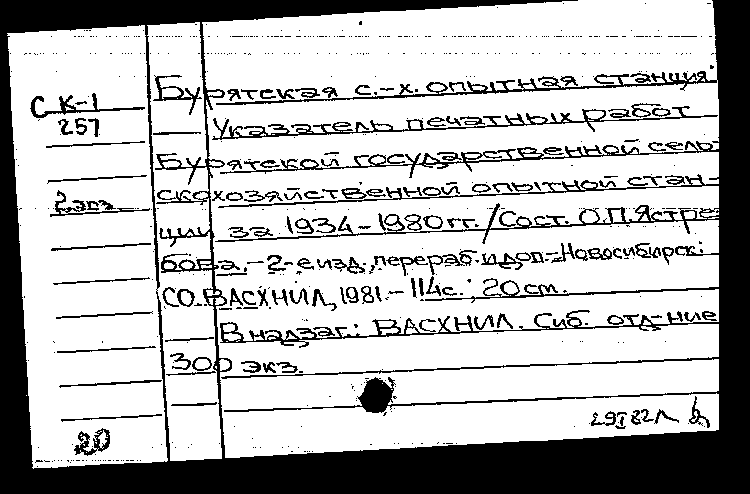 Бурятская с.-х. опытная станция.
С К-1
257
Указатель печатных работ
Бурятской государственной сель-
2 экз.
скохозяйственной опытной стан-
ции за 1934-1980 гг. /Сост. О.П.Ястре-
бова. - 2-е изд., перераб. и доп. - Новосибирск:
СО ВАСХНИЛ, 1981. - 114 с.; 20 см.
В надзаг.: ВАСХНИЛ. Сиб. отд-ние
300 экз.
20